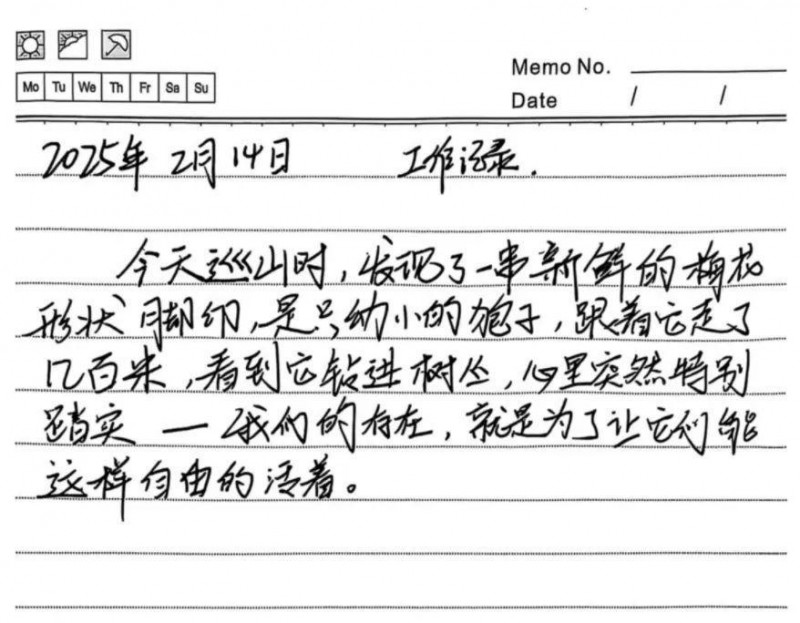 Mo Tu We Th Fr Sa Su
Memo No.
Date / /
2025年 2月14日 工作记录.
今天巡山时,发现了一串新鲜的梅花
形状脚印,是只幼小的狍子,跟着它走了
几百米,看到它钻进树丛,心里突然特别
踏实 — 我们的存在,就是为了让它们能
这样自由的活着。